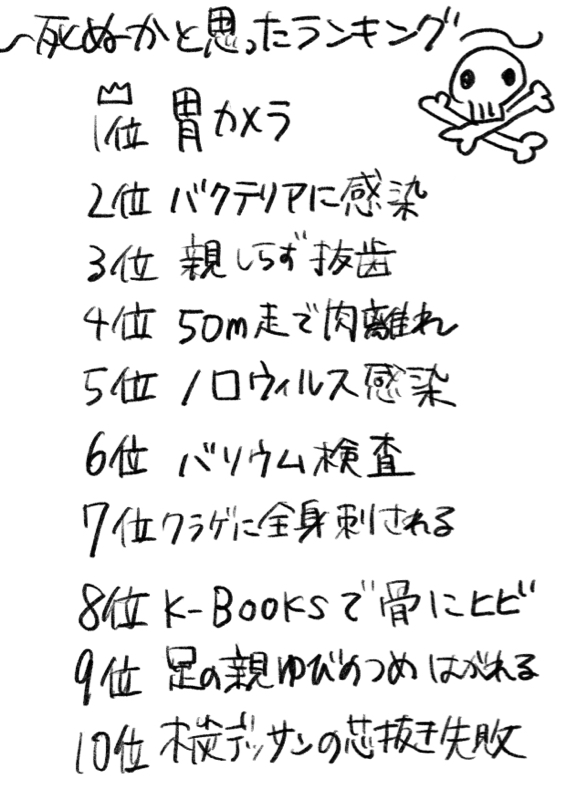 〜死ぬかと思ったランキング〜
1位 胃カメラ
2位 バクテリアに感染
3位 親しらず抜歯
4位 50m走で肉離れ
5位 ノロウィルス感染
6位 バリウム検査
7位 クラゲに全身刺される
8位 K-BOOKSで骨にヒビ
9位 足の親ゆびのつめはがれる
10位 木炭デッサンの芯抜き失敗